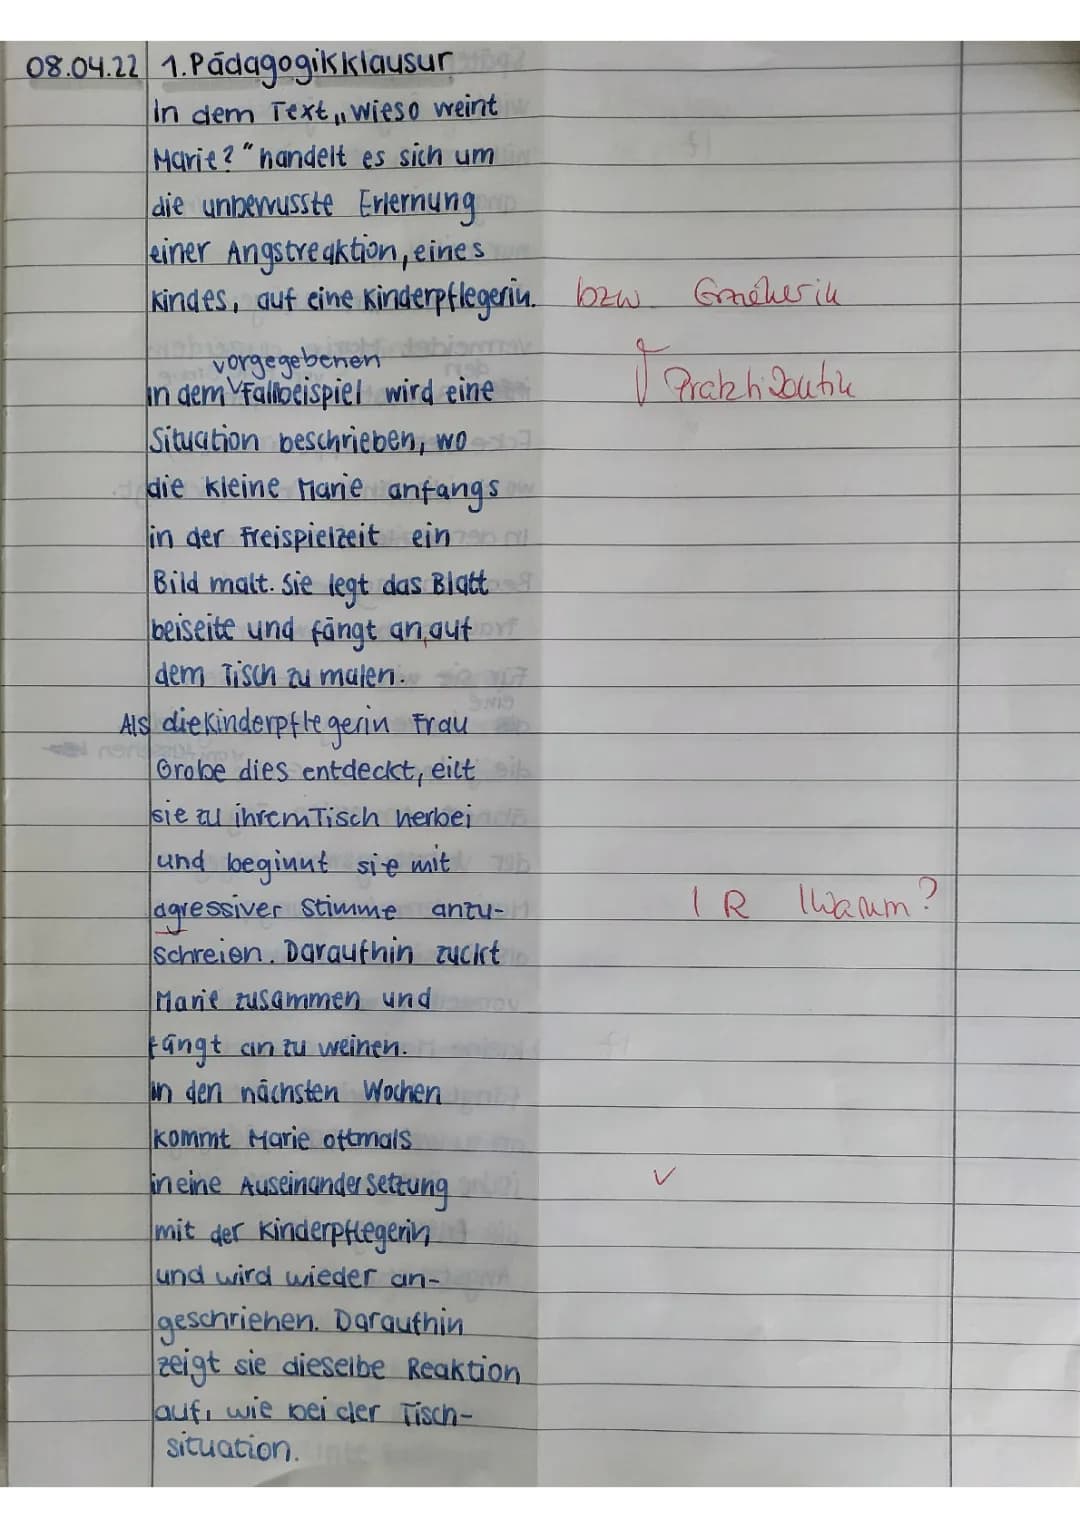 08.04.22 1. Pädagogikklausur
In dem Text „Wieso weint
Marie?" handelt es sich um
die unbewusste Erlernung
einer Angstreaktion, eines
Kindes, auf eine Kinderpflegerin. bzw. Erzieherin
vorgegebenen
in dem Fallbeispiel wird eine Praktikantin
Situation beschrieben, wo
die kleine Marie anfangs
in der Freispielzeit ein
Bild malt. Sie legt das Blatt
beiseite und fängt an, auf
dem Tisch zu malen.
Als die Kinderpflegerin Frau
Grobe dies entdeckt, eilt
sie zu ihrem Tisch herbei
und beginnt sie mit
agressiver Stimme anzu- R Warum?
schreien. Daraufhin zuckt
Marie zusammen und
fängt an zu weinen.
in den nächsten Wochen
kommt Marie oftmals
in eine Auseinandersetzung ✓
mit der Kinderpflegerin
und wird wieder an-
geschriehen. Daraufhin
zeigt sie dieselbe Reaktion
auf, wie bei der Tisch-
situation.